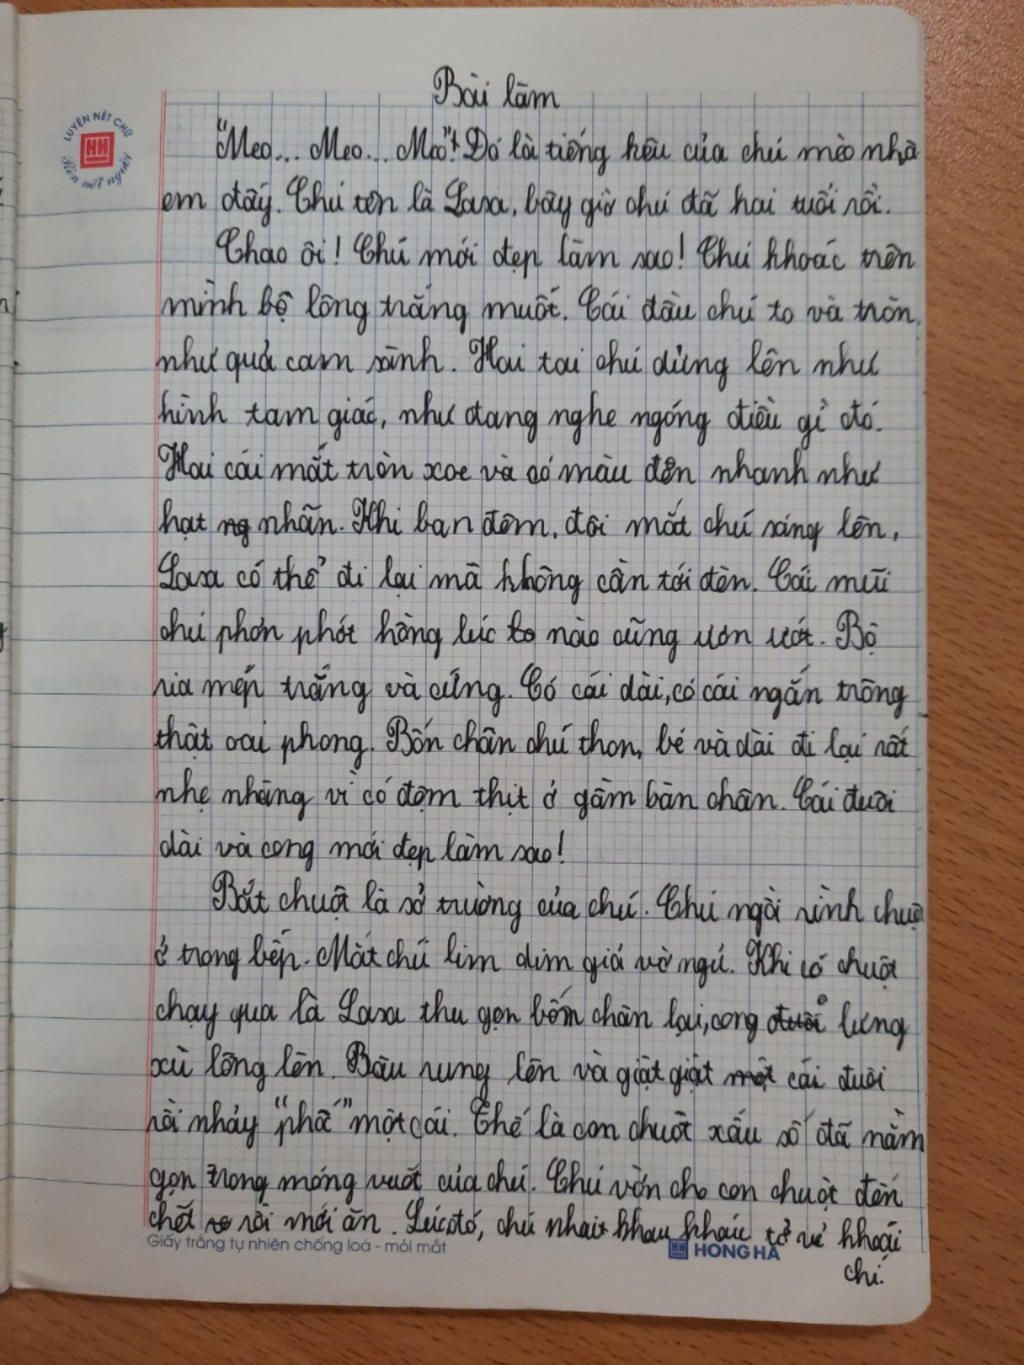 Bài làm
LUYỆN NÉT CHỮ
Rèn nết người
"Meo... Meo... Meo"! Đó là tiếng kêu của chú mèo nhà
em đấy. Chú tên là Saxa, bây giờ chú đã hai tuổi rồi.
Chao ôi! Chú mới đẹp làm sao! Chú khoác trên
mình bộ lông trắng muốt. Cái đầu chú to và tròn
như quả cam sành. Hai tai chú dửng lên như
hình tam giác, như đang nghe ngóng điều gì đó.
Hai cái mắt tròn xoe và có màu đen nhanh như
hạt nhãn. Khi ban đêm, đôi mắt chú sáng lên,
Saxa có thể đi lại mà không cần tới đèn. Cái mũi
chú phơn phớt hồng lúc nào cũng ươn ướt. Bộ
ria mép trắng và cứng. Có cái dài, có cái ngắn trông
thật oai phong. Bốn chân chú thon, bé và dài đi lại rất
nhẹ nhàng vì có đệm thịt ở gầm bàn chân. Cái đuôi
dài và cong mới đẹp làm sao!
Bắt chuột là sở trường của chú. Chú ngồi rình chuột
ở trong bếp. Mắt chú lim dim giả vờ ngủ. Khi có chuột
chạy qua là Saxa thu gọn bốn chân lại, cong lưng
xù lông lên. Bâu rung lên và giật giật cái đuôi
rồi nhảy "phấ" một cái. Thế là con chuột xấu số đã nằm
gọn trong móng vuốt của chú. Chú vờn cho con chuột đến
chết rồi mới ăn. Lúc đó, chú nhai khau kháu tỏ vẻ khoái
chí.
Giấy trắng tự nhiên chống loá - mỏi mắt
HH HONG HA